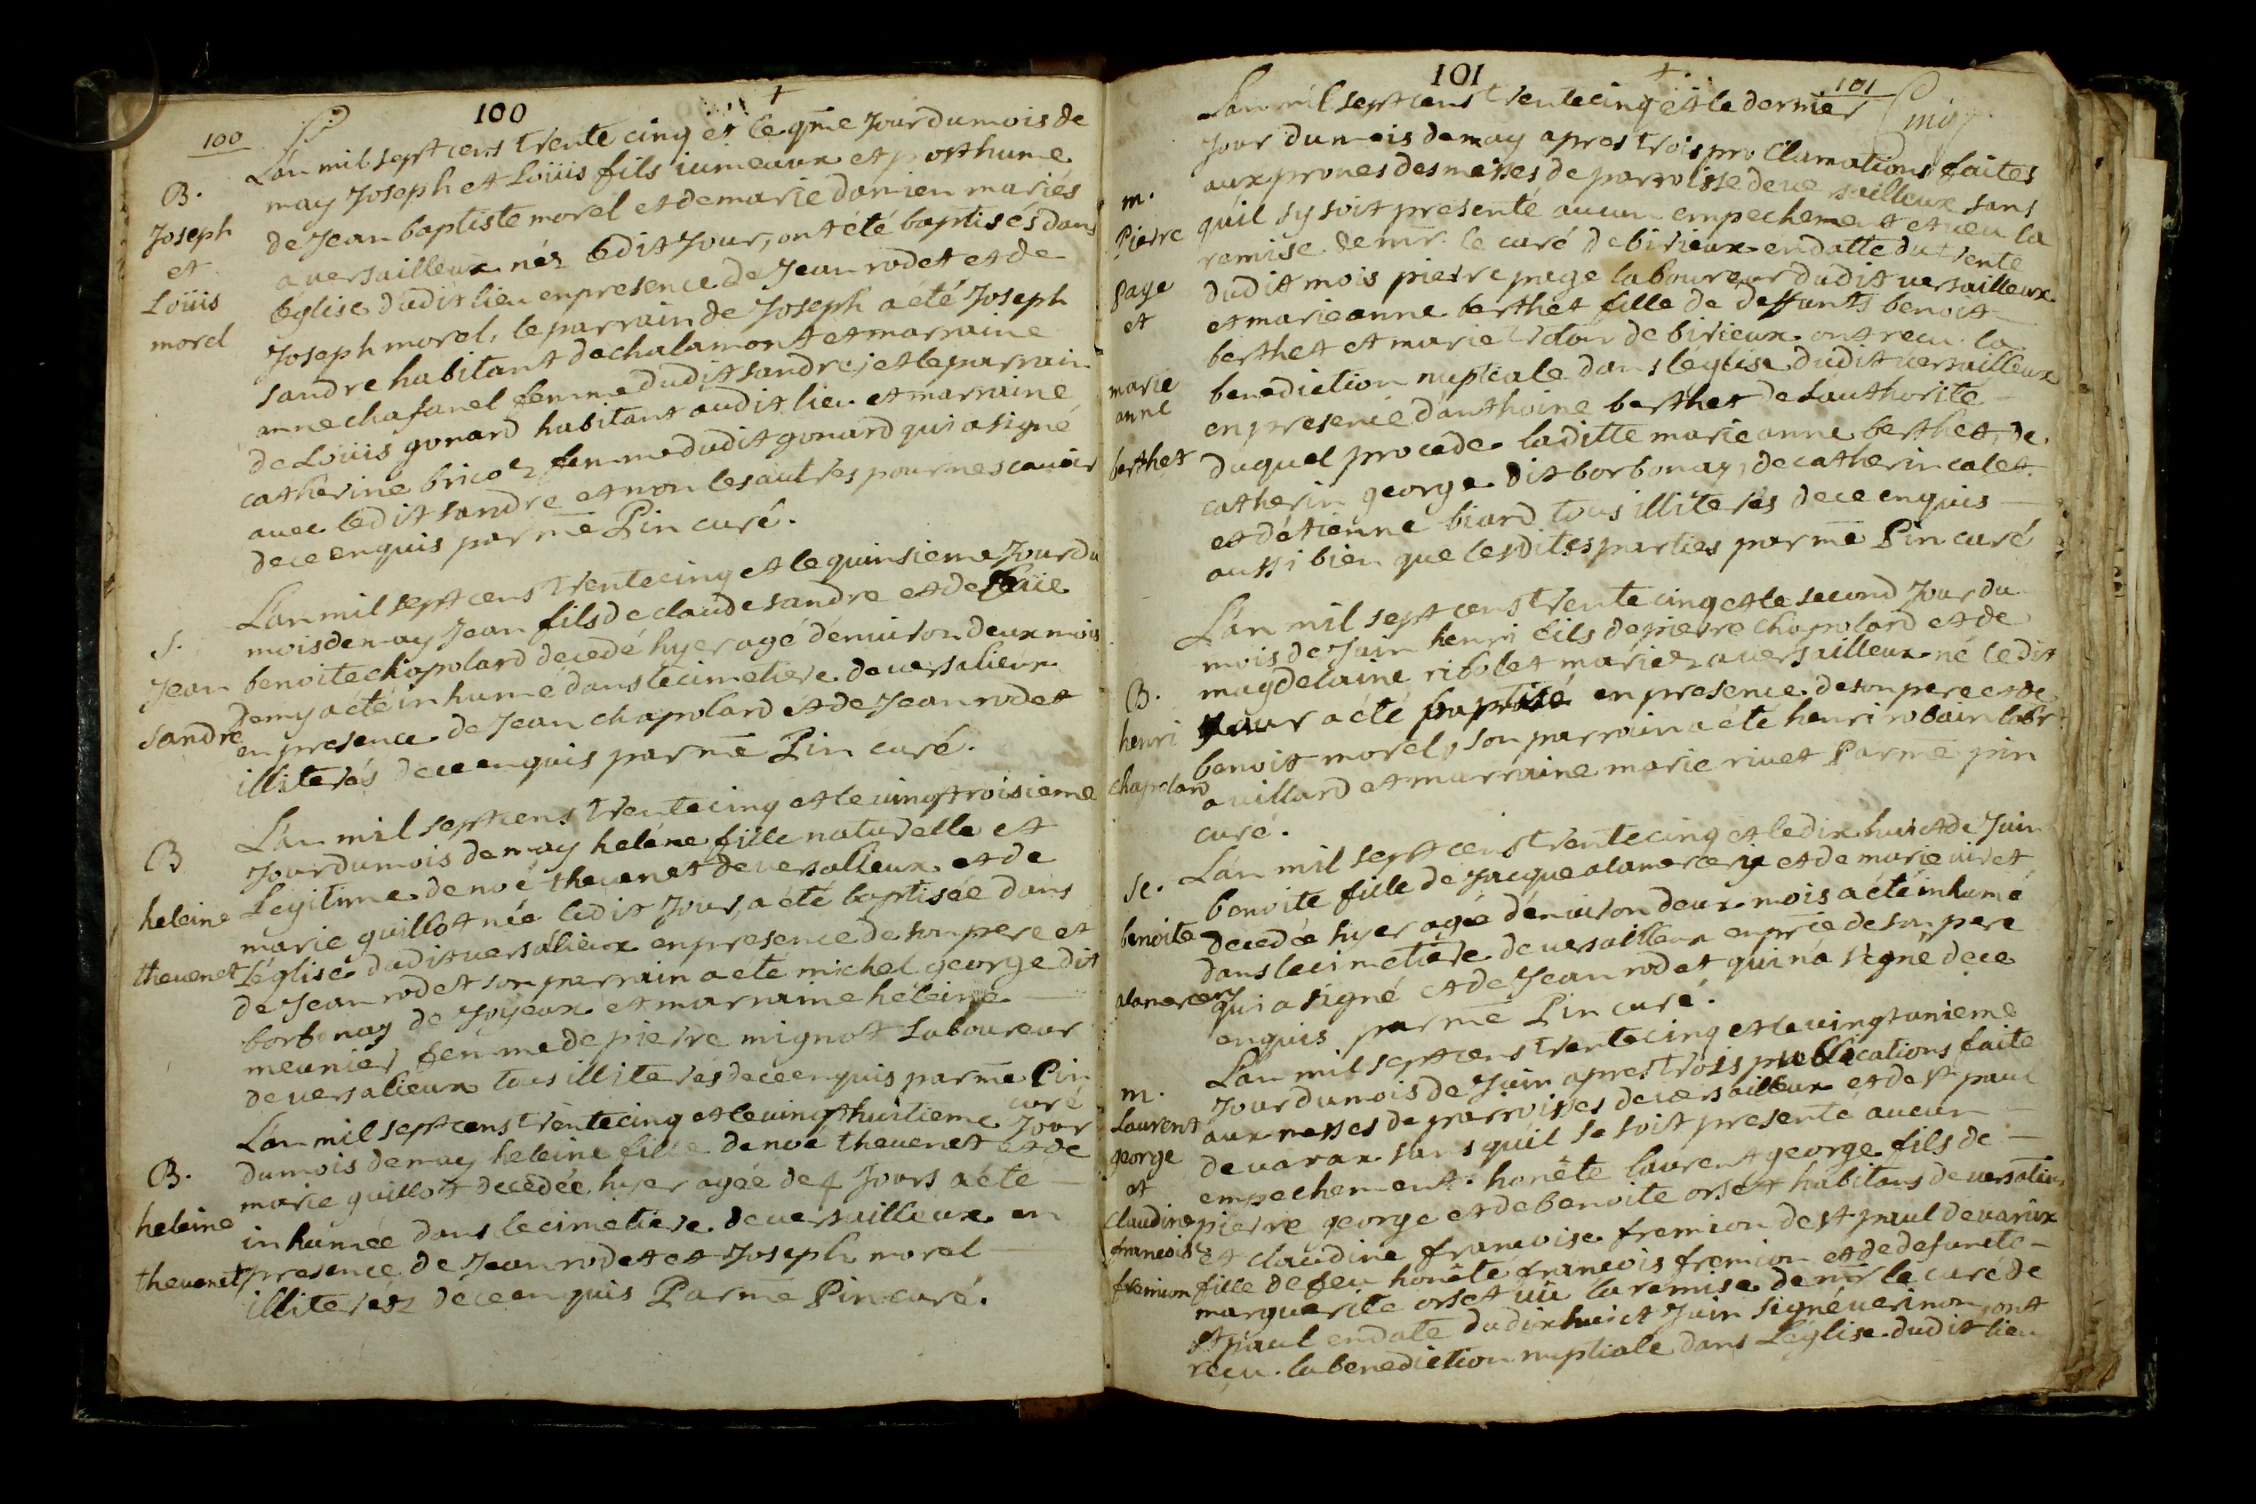 100
100
L'an mil sept cens trente cinq et le qme Jour du mois de
B.
may Joseph et Loüis fils iumeaux et posthume
Joseph
de Jean baptiste morel et de marie damien mariés
et
a versailleux nés ledit Jour, ont été baptisés dans
Loüis
l'église dudit lieu en presence de Jean rodet et de
morel
Joseph morel, le parrain de Joseph a été Joseph
sandre habitant de chalamont et marraine
anne chafanel femme dudit sandre; et le parrain
de Loüis gonard habitant audit lieu et marraine
catherine bricoz femme dudit gonard qui a signé
avec ledit sandre et non les autres pour ne scavoir
de ce enquis par me Pin curé.
L'an mil sept cens trente cinq et le quinsieme Jour du
S.
mois de may Jean fils de claude sandre et de
Jean
benoite chapolard decedé hyer agé d'environ deux mois
sandre
demy a été inhumé dans le cimetiere de versalieux
en presence de Jean chapolard et de Jean rodet
illiterés de ce enquis par me Pin curé.
L'an mil sept cens trente cinq et le vingt troisieme
B
Jour du mois de may heléne fille naturelle et
Legitime de noé thevenet de versalieux et de
heleine
marie guillot née ledit Jour, a été baptisée dans
thevenet
L'église dudit versalieux en presence de son pere et
de Jean rodet son parrain a été michel george dit
borbonay de Joyeux et marraine héleine
meunier femme de pierre mignot Laboureur
de versalieux tous illiterés de ce enquis par me Pin
curé
L'an mil sept cens trente cinq et le vingt huitieme Jour
B.
du mois de may heleine fille de noé thevenet et de
marie guillot decédée hyer agée de 4 Jours a été
heleine
inhumée dans le cimetiere de versailleux en
thevenet
presence de Jean rodet et Joseph morel
illiterez de ce enquis Par me Pin curé.
101
101
L'an mil sept cens trente cinq et le dernier
Jour du mois de may apres trois proclamations faites
m.
aux prones des messes de parroisse de versailleux sans
Pierre
quil sy soit presenté aucun empechement et veu la
remise de mr. le curé de birieux en datte du trente
page
dudit mois pierre page laboureur dudit versailleux
et
et marie anne berthet fille de deffunts benoit
berthet et marie de birieux ont recu la
marie
benediction nuptiale dans l'église dudit versailleux
anne
en presence d'anthoine berthet de Lauthorité
berthet
duquel procede laditte marie anne berthet, de
catherin george dit borbonay, de catherin calet
et d'étienne biard tous illiterés de ce enquis
aussi bien que lesdites parties par me Pin curé
L'an mil sept cens trente cinq et le second Jour du
mois de Juin henri fils de pierre chapolard et de
B.
magdelaine ribolet mariez a versailleux né ledit
henri
Jour a été baptisé en presence de son pere et de
chapolard
benoit morel, son parrain a été henri robain labr
a villard et marraine marie rivet Par me pin
curé.
L'an mil sept cens trente cinq et le dix huict de Juin
Se.
benoite fille de Jacque alamercery et de marie viret
benoite
decedée hyer agée d'environ deux mois a été inhumé
dans le cimetiére de versailleux en prce de son pere
alamercery
qui a signé et de Jean rodet qui n'a signé de ce
enquis par me Pin curé.
L'an mil sept cens trente cinq et le vingtunieme
m.
Jour du mois de Juin apres trois publications faite
Laurent
aux messes de parroisses de versailleux et de st paul
george
de varax sans quil se soit presenté aucun
et
empechement. honête laurent george fils de
Claudine
pierre george et de benoite orset habitans de versalieux
francoise
et claudine francoise fremion de st paul de varax
fremion
fille de feu honête francois fremion et de defuncte
marguerite orset vüe la remise de mr le curé de
st paul en date du dix huict Juin signé verinon, ont
reçu la benediction nuptiale dans L'église dudit lieu